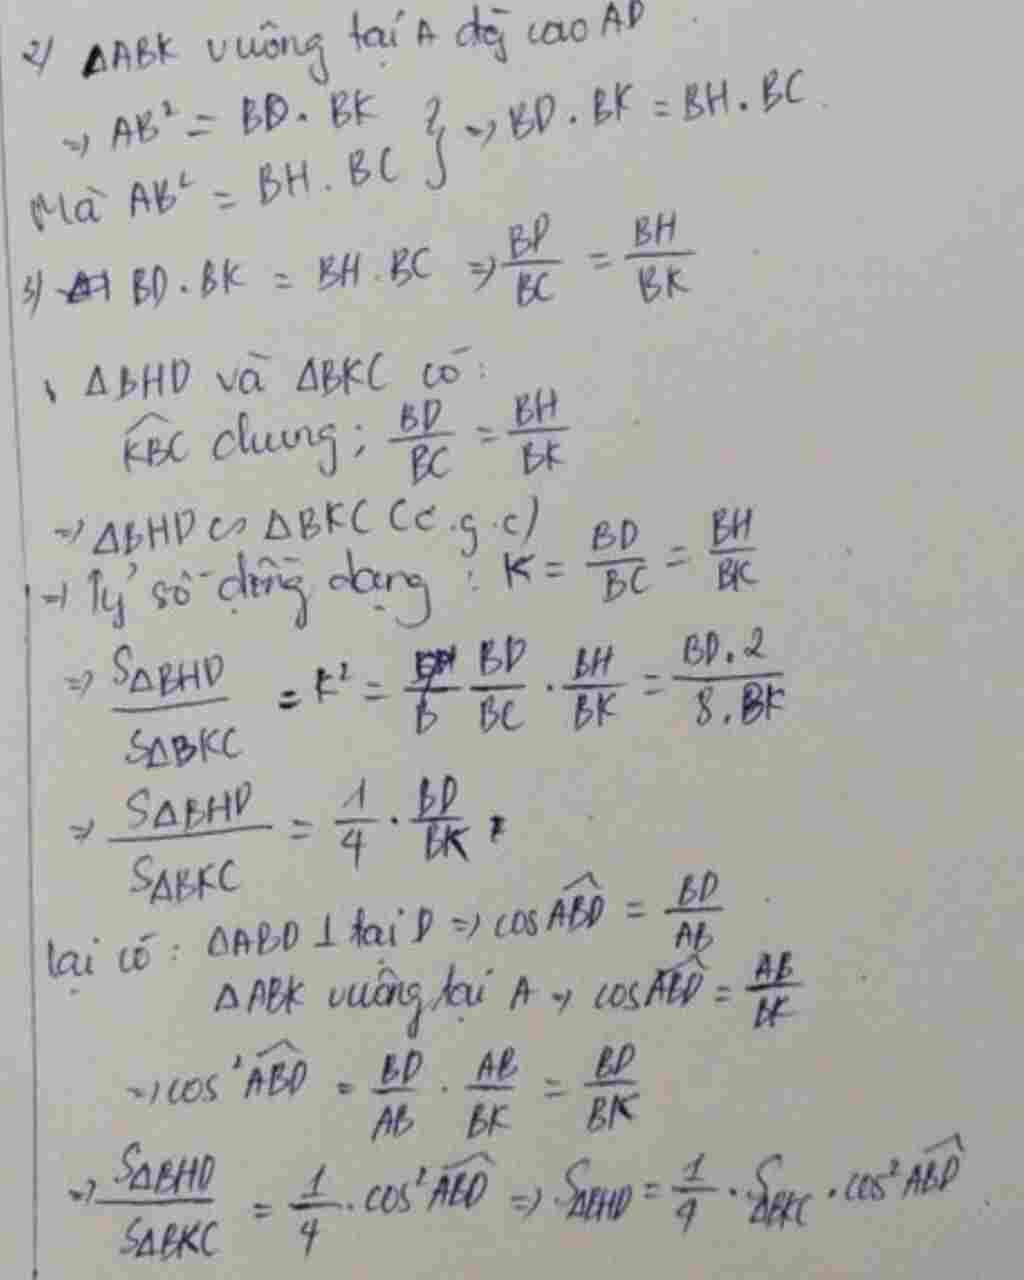 2) ΔABK vuông tại A đg cao AD
=> AB² = BD. BK } => BD. BK = BH. BC
Mà AB² = BH. BC
3) BD. BK = BH. BC => BD/BC = BH/BK
, ΔBHD và ΔBKC có:
KBC chung; BD/BC = BH/BK
=> ΔBHD ∽ ΔBKC (c.g.c)
=> Tỷ số đồng dạng: K = BD/BC = BH/BK
=> SΔBHD/SΔBKC = K² = BD/BC . BH/BK = BD.2/8.BK
=> SΔBHD/SΔBKC = 1/4 . BD/BK
lại có: ΔABD ⊥ tại D => cos ABD = BD/AB
ΔABK vuông tại A => cos ABD = AB/BK
=> cos² ABD = BD/AB . AB/BK = BD/BK
=> SΔBHD/SΔBKC = 1/4 . cos² ABD => SΔBHD = 1/4 . SΔBKC . cos² ABD